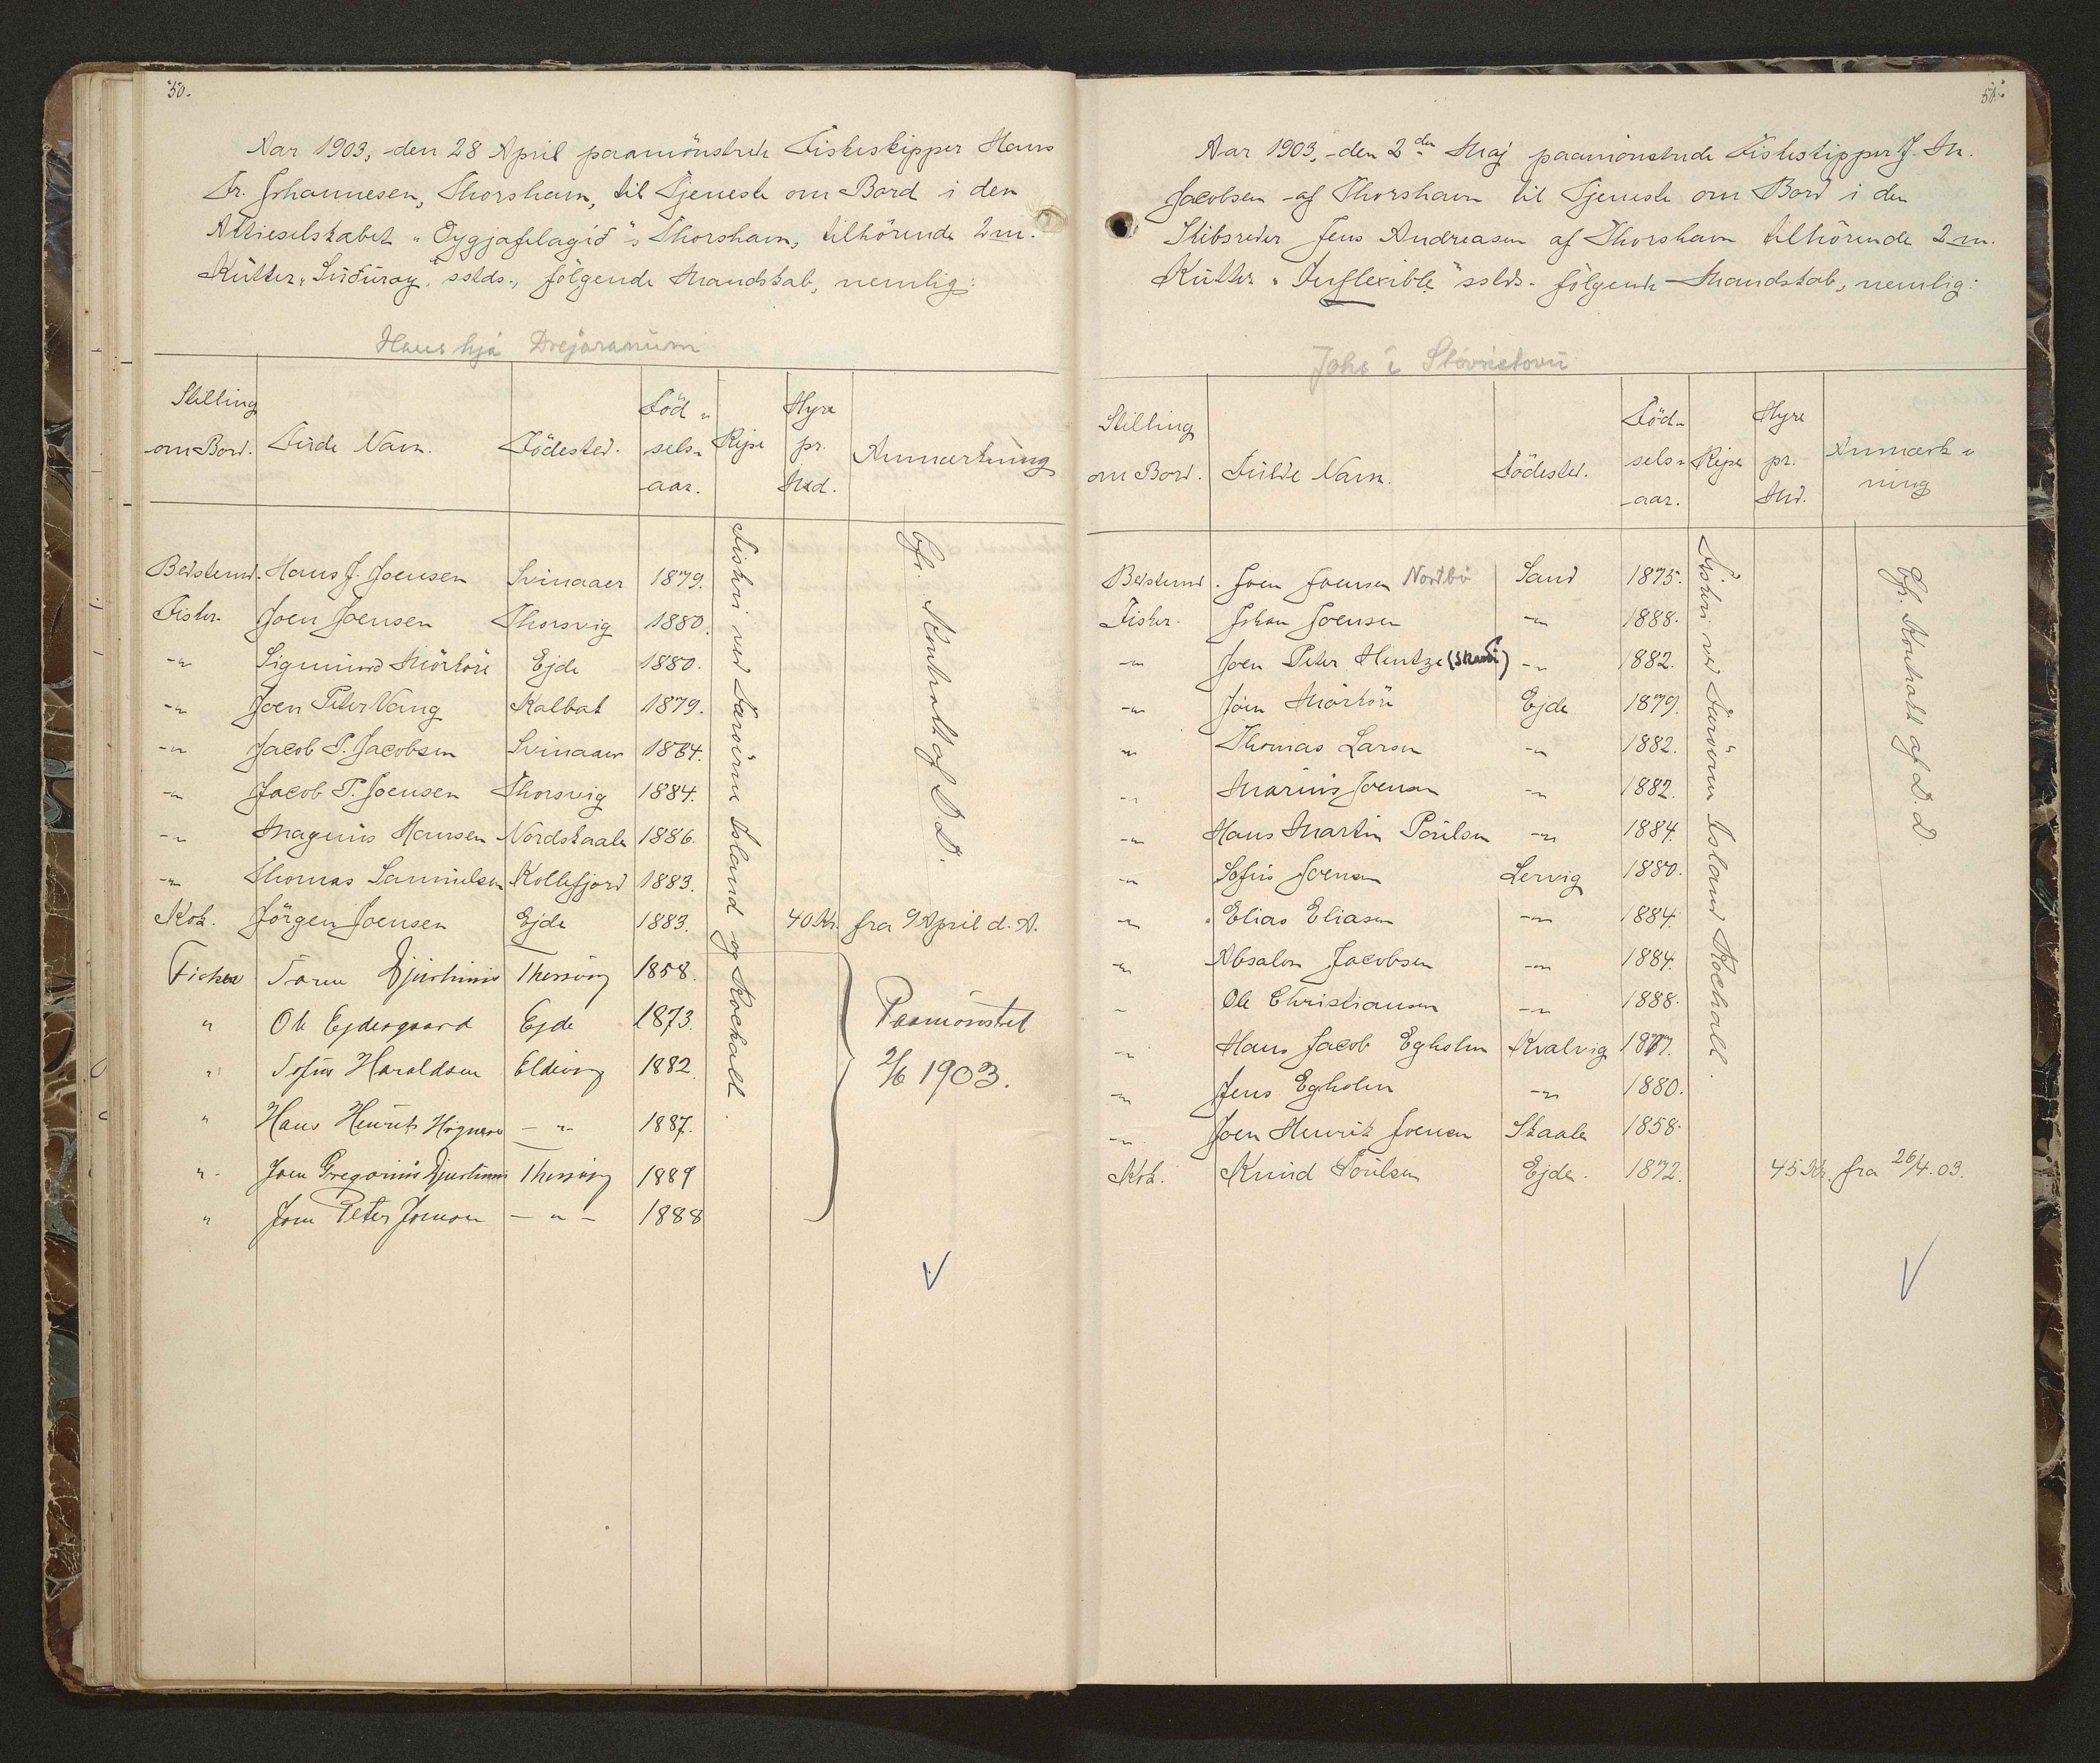 50.
Aar 1903, den 28 April paamönstrede Fiskeskipper Hans
Fr. Johannesen, Thorshavn, til Tjeneste om Bord i den
Aktieselskabet "Oyggjafelagið"s Thorshavn, tilhörende 2 m.
Kutter "Suðuroy" sstds., fölgende Mandskab, nemlig:
Hans hjá Drejaranum
Stilling om Bord. Fulde Navn. Födested. Födselsaar. Rejse Hyre pr. Md. Anmærkning
Bedstemd. Hans J. Joensen Svinaaer 1879.
Fisker. Joen Joensen Thorsvig 1880.
-"- Sigmund Mörköre Ejde 1880.
-"- Joen Peter Vang Kalbak 1879.
-"- Jacob P. Jacobsen Svinaaer 1864.
-"- Jacob P. Joensen Thorsvig 1884.
-"- Magnus Hansen Nordskaale 1886.
-"- Thomas Samuelsen Kollefjord 1883.
Kok. Jörgen Joensen Ejde 1883. 40 Kr. fra 9 April d. A.
Fisker 1858.
" Ole Ejdesgaard Ejde 1873.
" Sofus Haraldsen Eldevig 1882.
" Hans Henrik -"- 1887.
" Joen Gregorius 1889
" Joen Peter Joensen -"- 1888
Fiskeri ved Færöerne Island og Rockall.
Cfr. Kontrakt af D. D.
Paamönstret
2/6 1903.
51.
Aar 1903, den 2den Maj paamönstrede Fiskeskipper J. M.
Jacobsen af Thorshavn til Tjeneste om Bord i den
Skibsreder Jens Andreasen af Thorshavn tilhörende 2 m.
Kutter "Inflexible" sstds. fölgende Mandskab, nemlig:
Stilling om Bord. Fulde Navn. Födested. Födselsaar. Rejse Hyre pr. Md. Anmærkning
Bedstemd. Joen Joensen Nordbö Sand 1875.
Fisker. Johan Joensen -"- 1888.
-"- Joen Peter Hentze -"- 1882.
-"- Joen Mörköre Ejde 1879.
-"- Thomas Larsen -"- 1882.
-"- Marius Joensen -"- 1882.
-"- Hans Martin Poulsen -"- 1884.
-"- Sofus Joensen Lervig 1880.
-"- Elias Eliasen -"- 1884.
-"- Absalon Jacobsen -"- 1884.
- Ole Christiansen -"- 1888.
-"- Hans Jacob Egholm Kvalvig 1877.
-"- Jens Egholm -"- 1880.
-"- Joen Henrik Joensen Skaale 1858.
Kok. Knud Poulsen Ejde. 1872. 45 Kr. fra 26/4. 03.
Fiskeri ved Færöerne Island Rockall.
Cfr. Kontrakt af D. D.